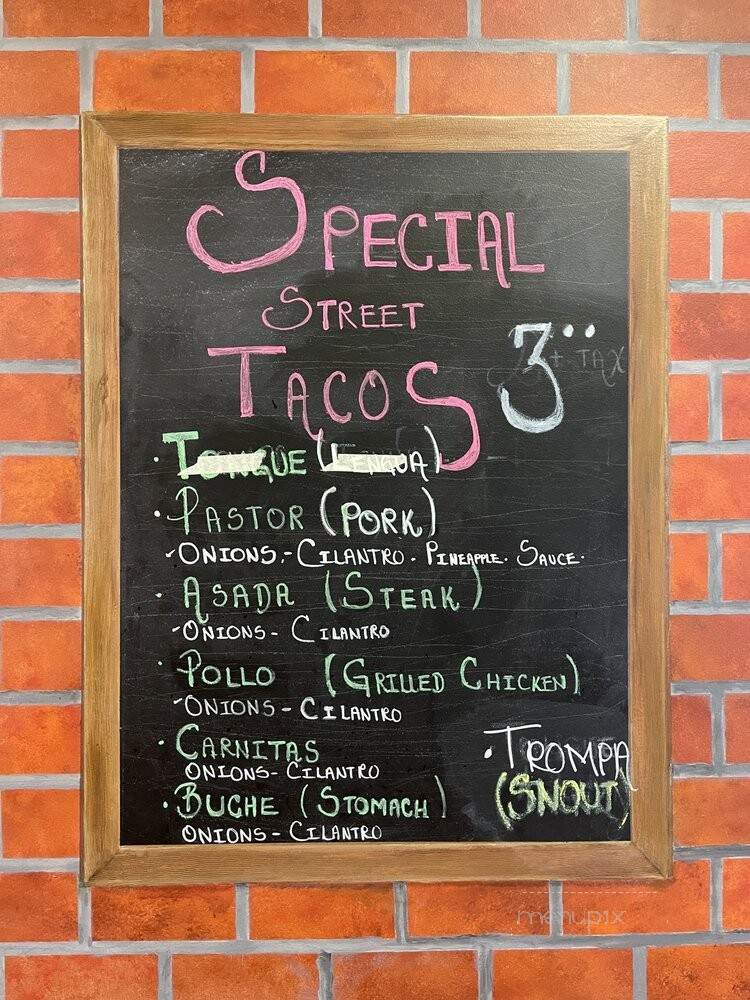 Special
Street
Tacos
3..
+ TAX
· Tongue (Lengua)
· Pastor (Pork)
-Onions.-Cilantro. Pineapple. Sauce.
· Asada (Steak)
-Onions- Cilantro
· Pollo (Grilled Chicken)
-Onions- Cilantro
· Carnitas
Onions- Cilantro
· Buche (Stomach)
Onions- Cilantro
· Trompa
(Snout)
menupix